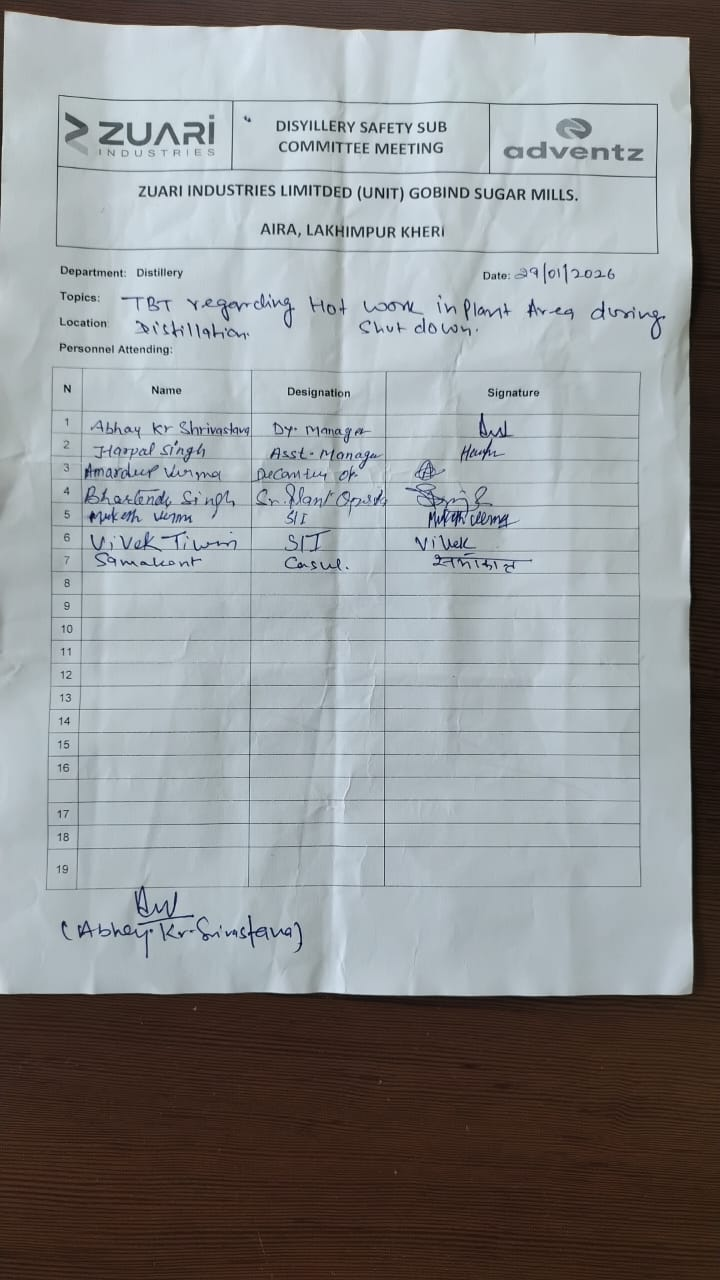 ZUARI
INDUSTRIES
DISYILLERY SAFETY SUB
COMMITTEE MEETING
adventz
ZUARI INDUSTRIES LIMITDED (UNIT) GOBIND SUGAR MILLS.
AIRA, LAKHIMPUR KHERI
Department: Distillery Date: 29/01/2026
Topics: TBT regarding Hot work in Plant Area during
Shut down.
Location: Distillation.
Personnel Attending:
N Name Designation Signature
1 Abhay Kr Shrivastava Dy. Manager
2 Harpal Singh Asst. Manager
3 Amardeep Verma
4 Singh Sr. Plant
5 Mukesh Verma S/I Mukesh Verma
6 Vivek Tiwari SII Vivek
7 Samakant Casul.
8
9
10
11
12
13
14
15
16
17
18
19
(Abhay Kr. Srivastava)